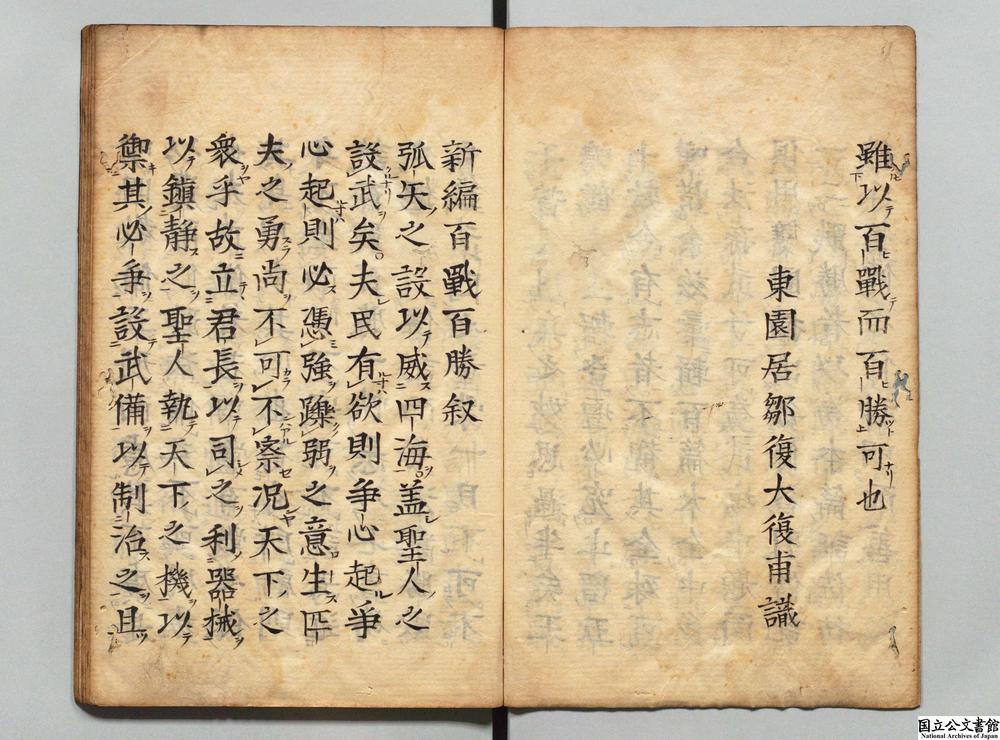 雖以百戰而百勝可也
東園居鄒復大復甫識
新編百戰百勝叙
弧矢之設以威四海盖聖人之
設武矣夫民有欲則爭心起爭
心起則必憑強躁弱之意生匹
夫之勇尚不可不察况天下之
衆乎故立君長以司之利器械
以鎮静之聖人執天下之機以
禦其必争設武備以制治之且
国立公文書館
National Archives of Japan